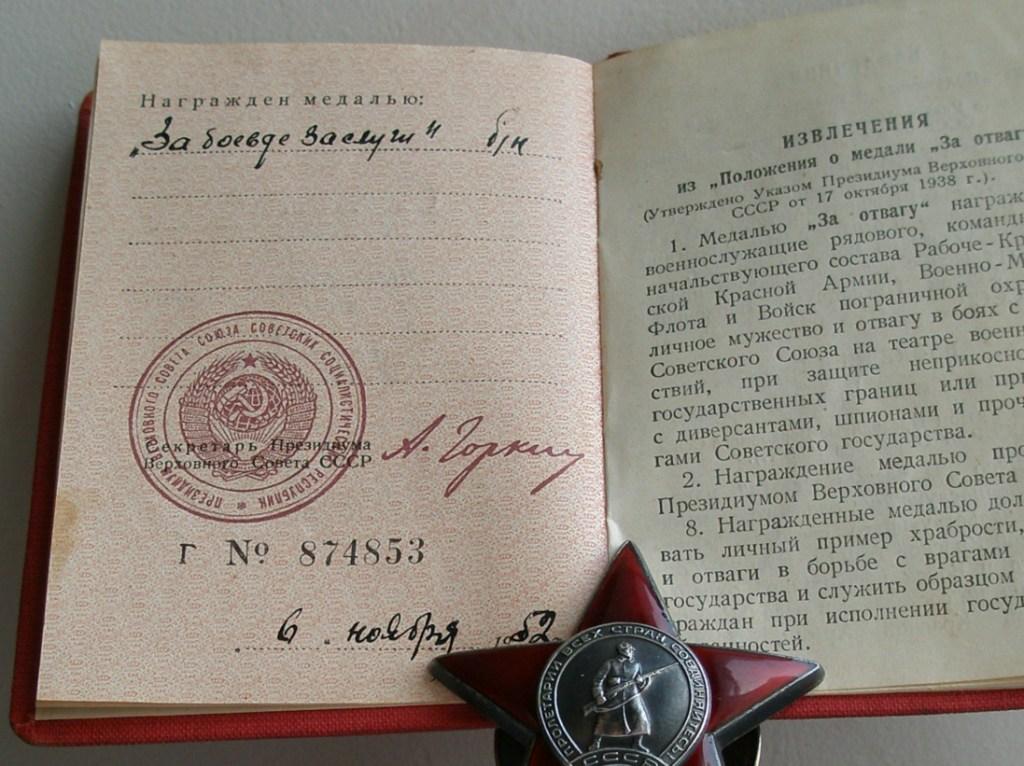 Награжден медалью:
„За боевые заслуги" б/н
ПРЕЗИДИУМ ВЕРХОВНОГО СОВЕТА СОЮЗА СОВЕТСКИХ СОЦИАЛИСТИЧЕСКИХ РЕСПУБЛИК
Секретарь Президиума
Верховного Совета СССР
А. Горкин
Г № 874853
6 ноября 1952
ИЗВЛЕЧЕНИЯ
из „Положения о медали „За отваг
(Утверждено Указом Президиума Верховного
СССР от 17 октября 1938 г.).
1. Медалью „За отвагу" награж
военнослужащие рядового, команд
начальствующего состава Рабоче-Кр
ской Красной Армии, Военно-М
Флота и Войск пограничной охр
личное мужество и отвагу в боях с
Советского Союза на театре воен
ствий, при защите неприкосно
государственных границ или при
с диверсантами, шпионами и проч
гами Советского государства.
2. Награждение медалью про
Президиумом Верховного Совета
8. Награжденные медалью дол
вать личный пример храбрости,
и отваги в борьбе с врагами
государства и служить образцом
граждан при исполнении госуд
нностей.
ПРОЛЕТАРИИ ВСЕХ СТРАН СОЕДИНЯЙТЕСЬ
СССР